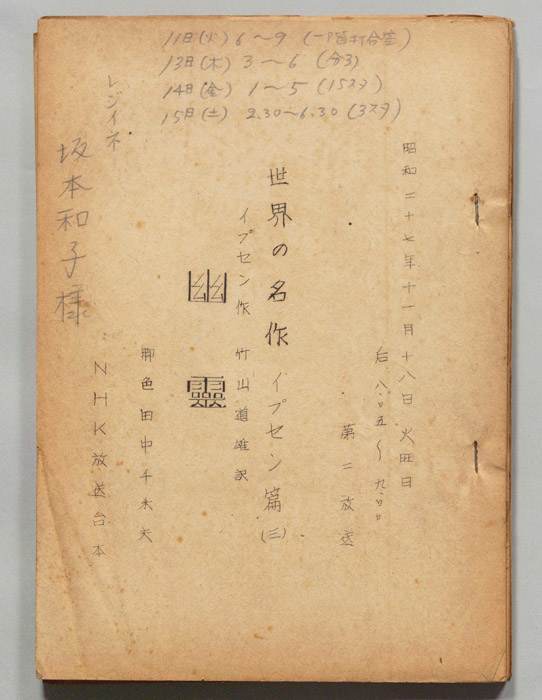 11日(火) 6〜9 (一階打合室)
13日(木) 3〜6 (分3)
14日(金) 1〜5 (15スタ)
15日(土) 2.30〜6.30 (3スタ)
昭和二十七年十一月十八日 火曜日
后 八.〇五〜九.〇〇
第二放送
世界の名作 イプセン篇(三)
イプセン作 竹山道雄訳
幽靈
脚色 田中千禾夫
NHK放送台本
レジイネ
坂本和子様